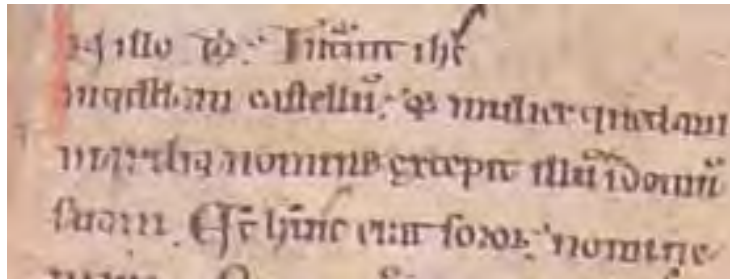 illo t̄p̄r̄. Int̄uit ihc̄
inquoddam castellū. & mulier quedam
martha nomine excepit illū ī domū
suam. Et huic erat soror nomine